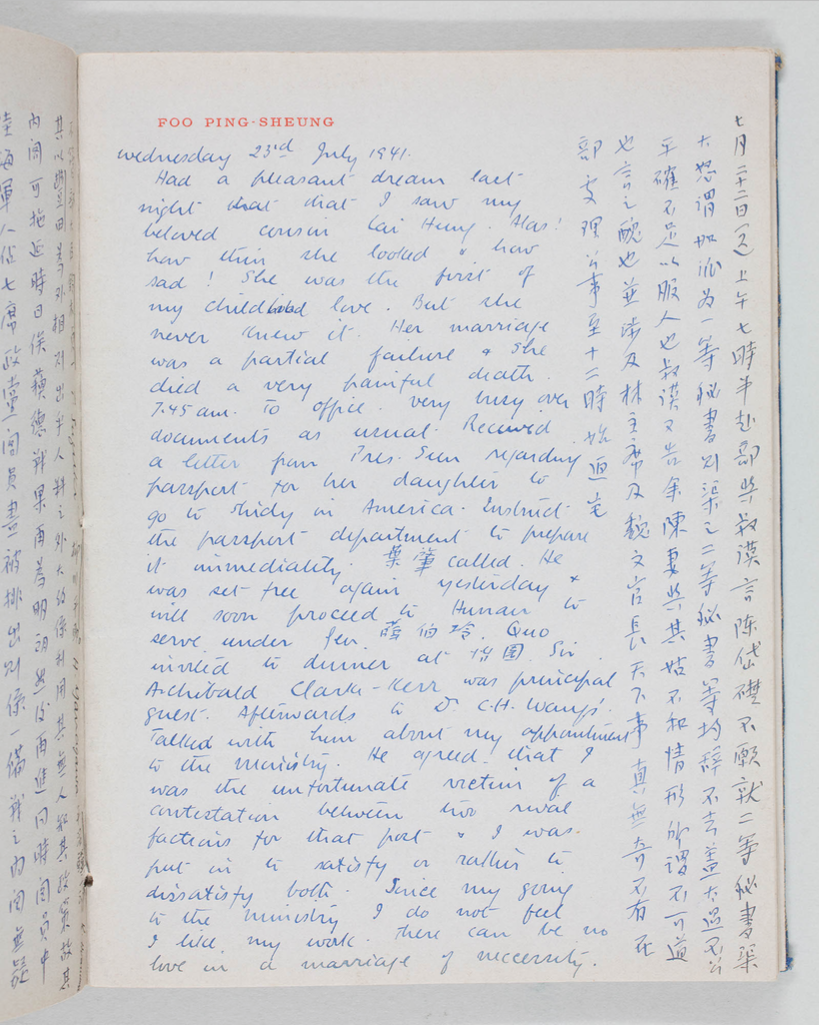 FOO PING-SHEUNG
七月二十二日(二)上午七時半赴部與叔謨言陳岱礎不願就二等秘書渠
大怒謂如派為一等秘書則渠之二等秘書等均辭不去蓋太過不公
平確不足以服人也叔謨又告余陳妻與其姑不和情形所謂不可道
也言之醜也並涉及林主席及魏文官長天下事真無奇不有 在
部處理公事至十二時始返宅
Wednesday 23rd July 1941.
Had a pleasant dream last
night that I saw my
beloved cousin Lai Hung. Alas!
how thin she looked & how
sad! She was the first of
my childhood love. But she
never knew it. Her marriage
was a partial failure & she
died a very painful death.
7.45 am. To office. very busy over
documents as usual. Received
a letter from Pres. Sun regarding
passport for her daughter to
go to study in America. Instruct
the passport department to prepare
it immediately. 葉肇 called. He
was set free again yesterday &
will soon proceed to Hunan to
serve under Gen. 薛伯玲. Quo
invited to dinner at 怡園. Sir
Archibald Clarke-Kerr was principal
guest. Afterwards to Dr. C.H. Wang's.
Talked with him about my appointment
to the ministry. He agreed that I
was the unfortunate victim of a
contestation between two rival
factions for that post & I was
put in to satisfy or rather to
dissatisfy both. Since my going
to the ministry I do not feel
I like my work. There can be no
love in a marriage of neccersity.
內閣可拖延時日俟蘇德戰果再為明朗然後再進同時閣員中
陸海軍人佔七席政黨閣員盡被排出則係一備戰之內閣無疑